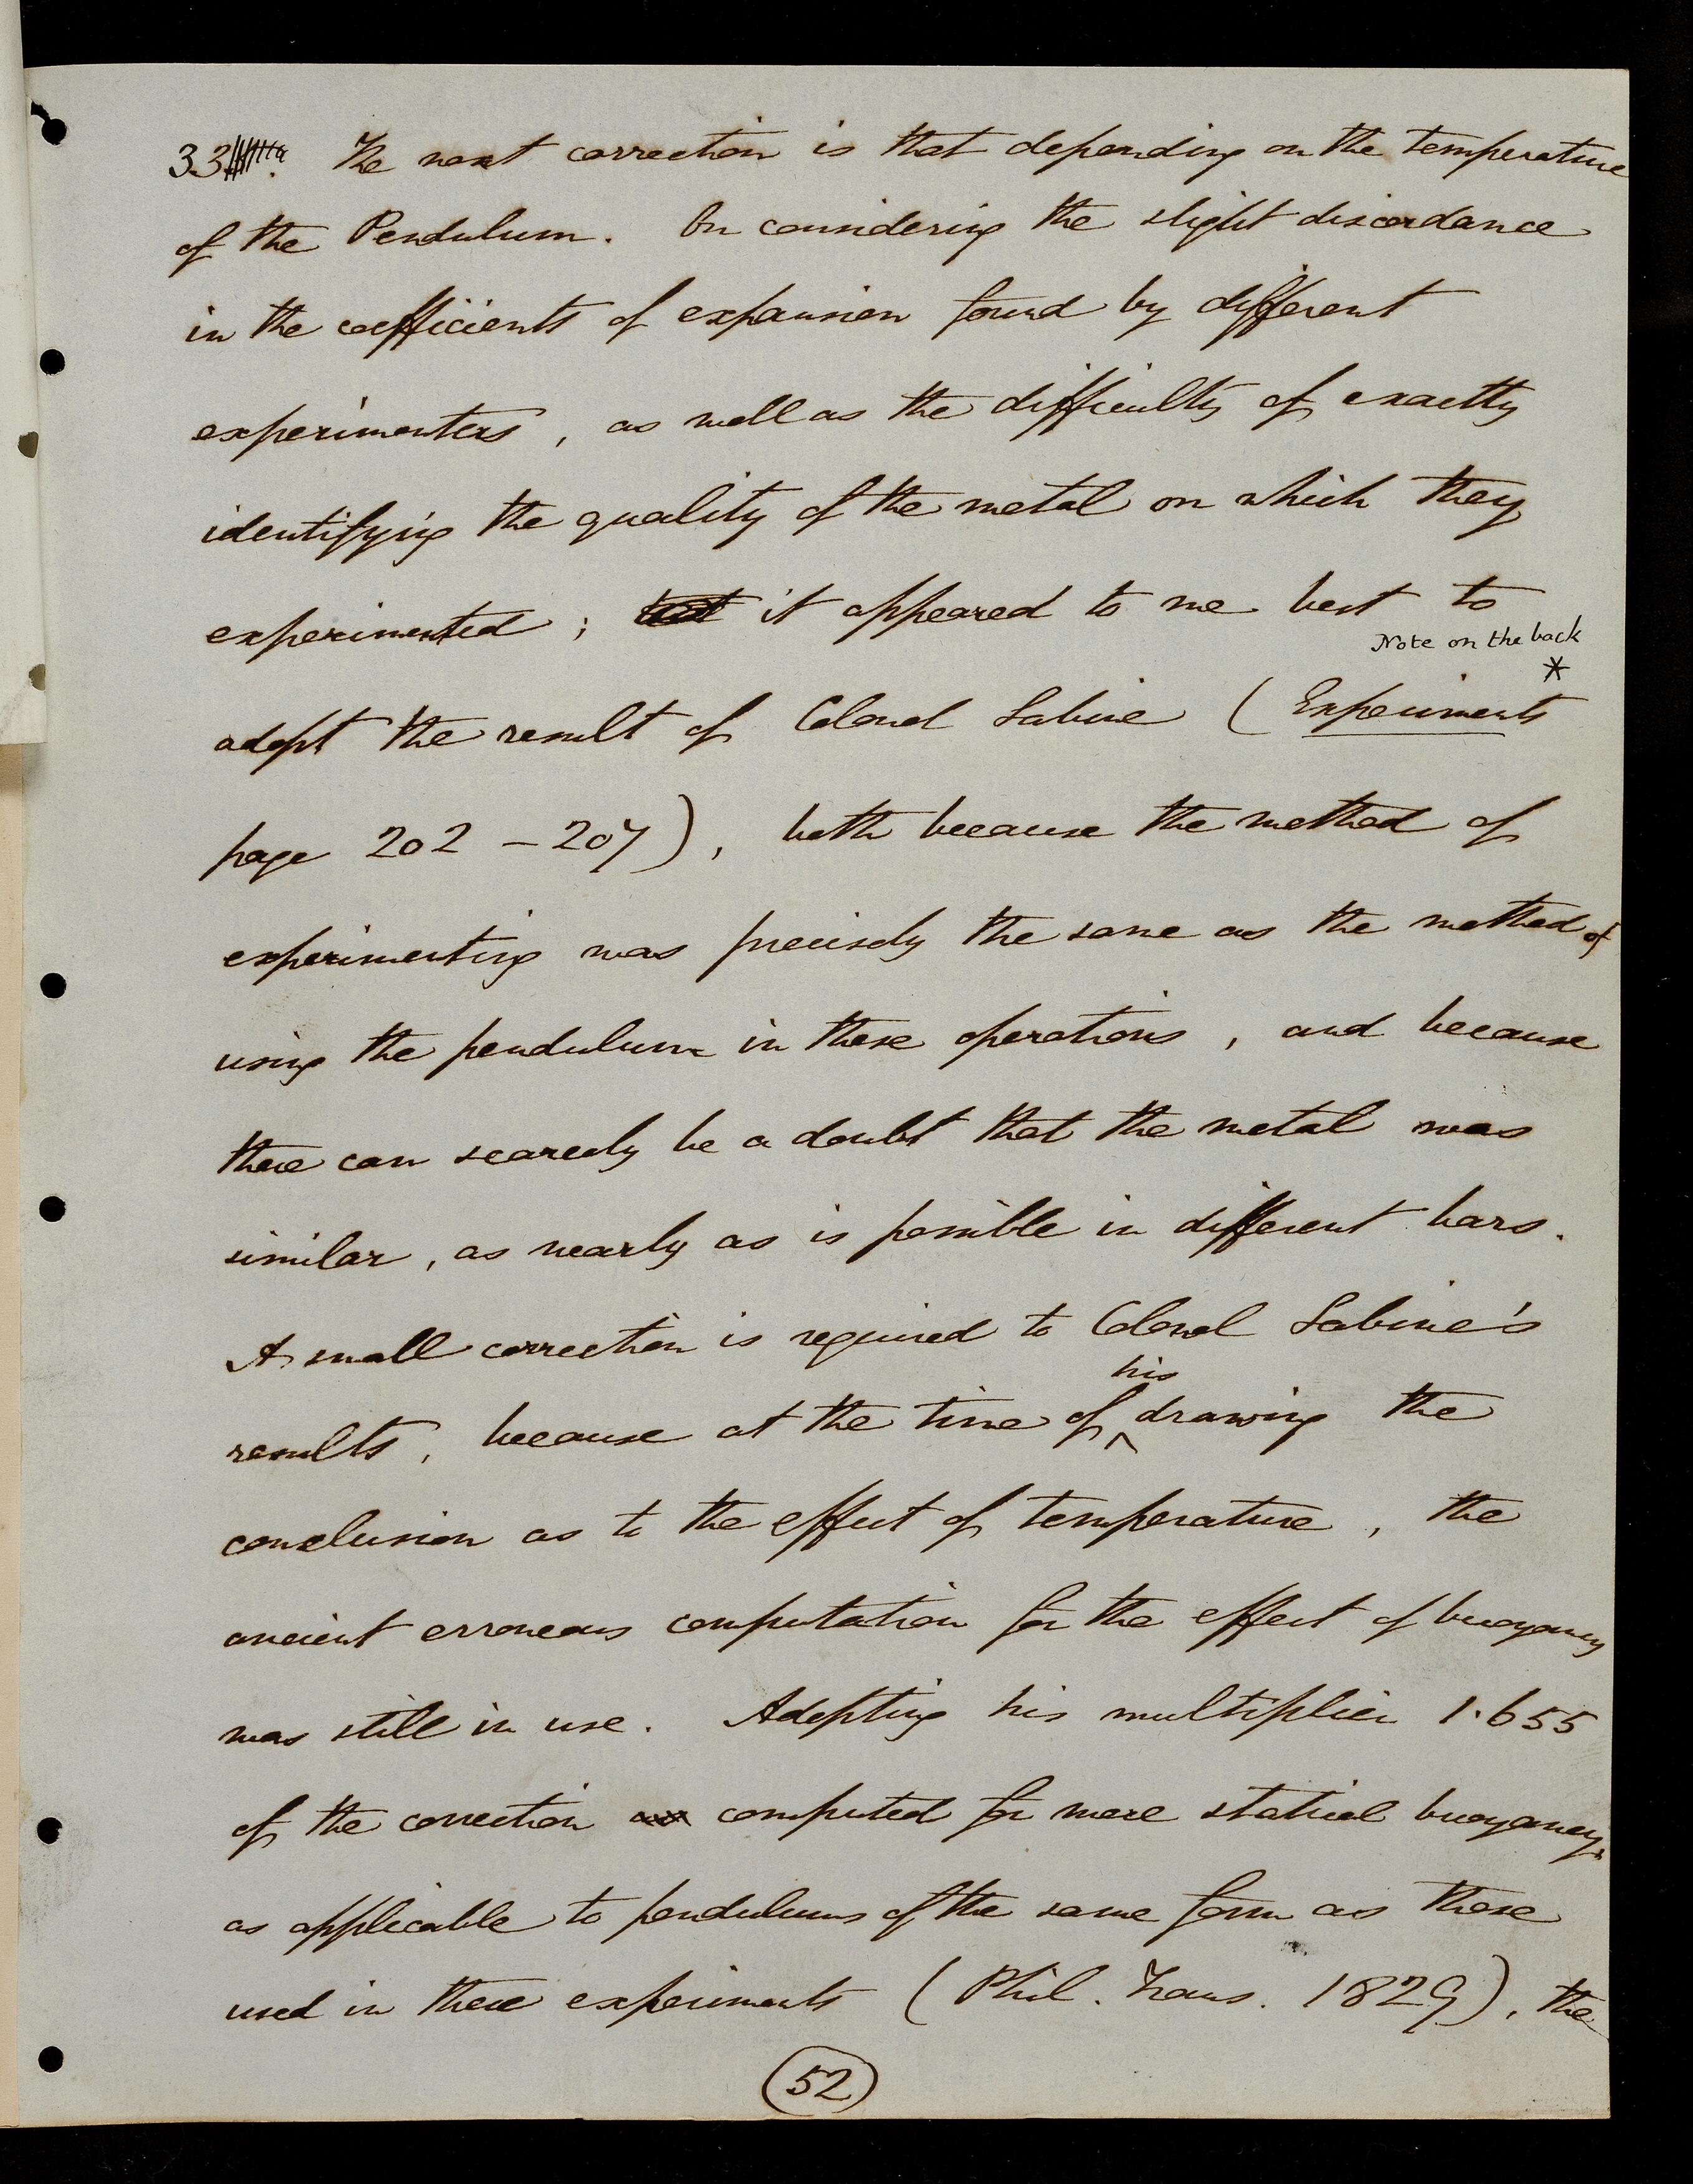 33. The next correction is that depending on the temperature
of the Pendulum. On considering the slight discordance
in the coefficients of expansion found by different
experimenters, as well as the difficulty of exactly
identifying the quality of the metal on which they
experimented; it appeared to me best to
Note on the back
*
adopt the result of Colonel Sabine (Experiments
page 202 - 207), both because the method of
experimenting was precisely the same as the method of
using the pendulum in these operations, and because
there can scarcely be a doubt that the metal was
similar, as nearly as is possible in different bars.
A small correction is required to Colonel Sabine's
his
results, because at the time of ^ drawing the
conclusion as to the effect of temperature, the
ancient erroneous computation for the effect of buoyancy
was still in use. Adopting his multiplier 1.655
of the correction computed for mere statical buoyancy,
as applicable to pendulums of the same form as those
used in these experiments (Phil. Trans. 1829), the
52